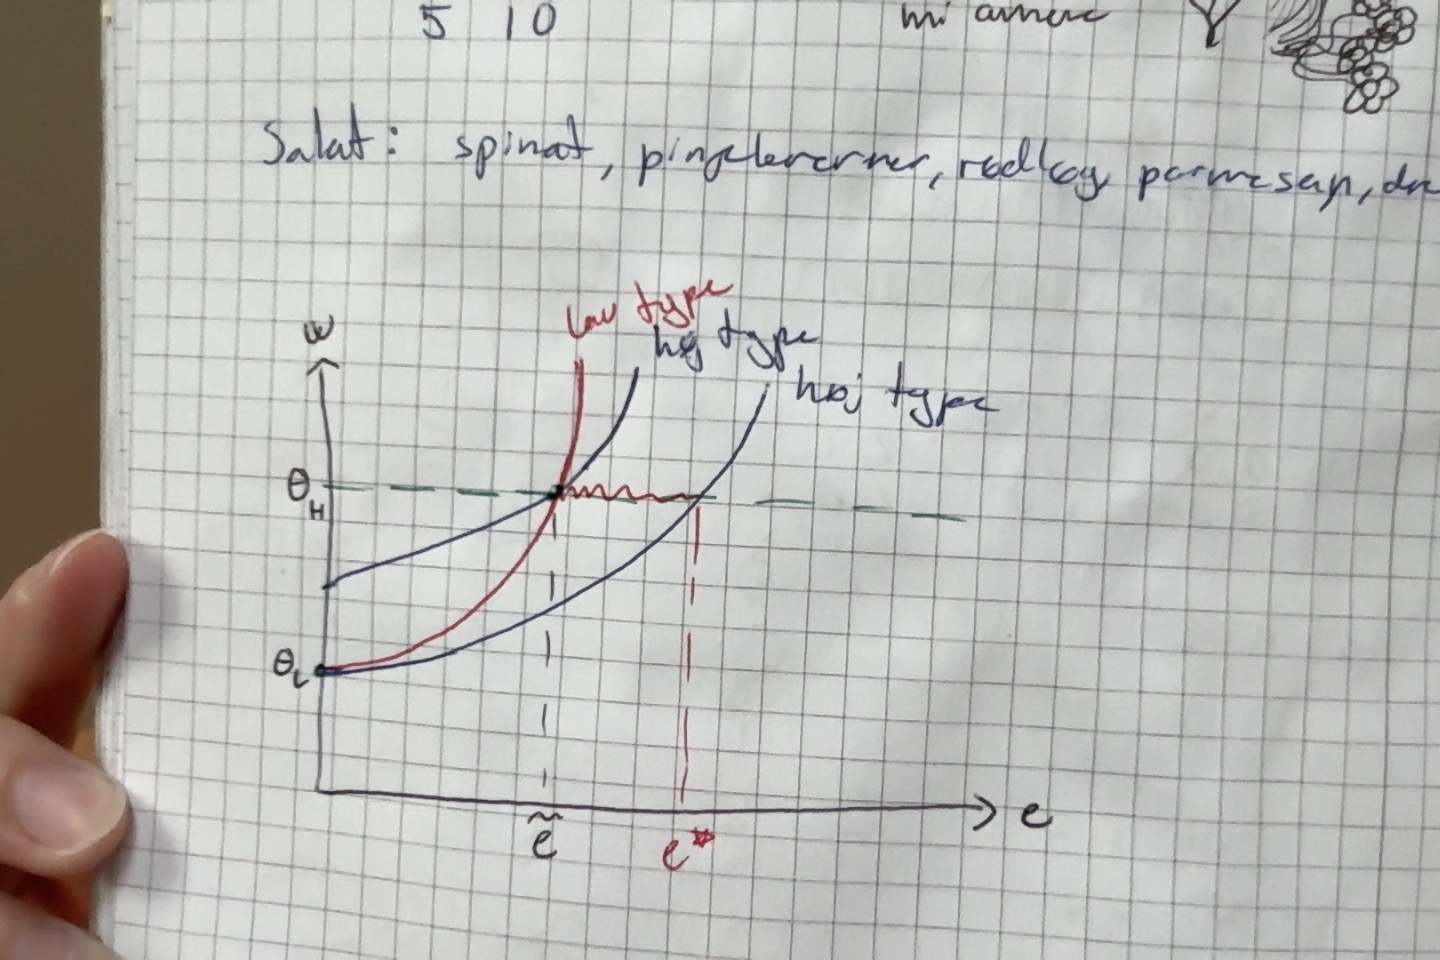 5 10
mi amore
Salat: spinat, pinjekerner, rødløg, parmesan,
w
lav type
høj type
høj type
θH
θL
ẽ
e*
e